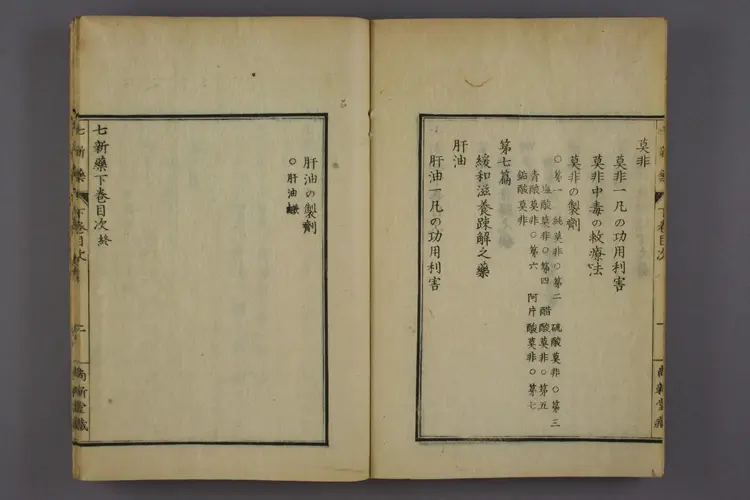 下卷目次
一
莫非
莫非一凡の功用利害
莫非中毒の救療法
莫非の製劑
○第一 純莫非○第二 硫酸莫非○第三
塩酸莫非○第四 醋酸莫非○第五
青酸莫非○第六 阿片酸莫非○第七
酸莫非
第七篇
緩和滋養疎解之藥
肝油
肝油一凡の功用利害
肝油の製劑
○肝油
七新藥下卷目次終
七新藥
下卷目次
二
尚新堂藏